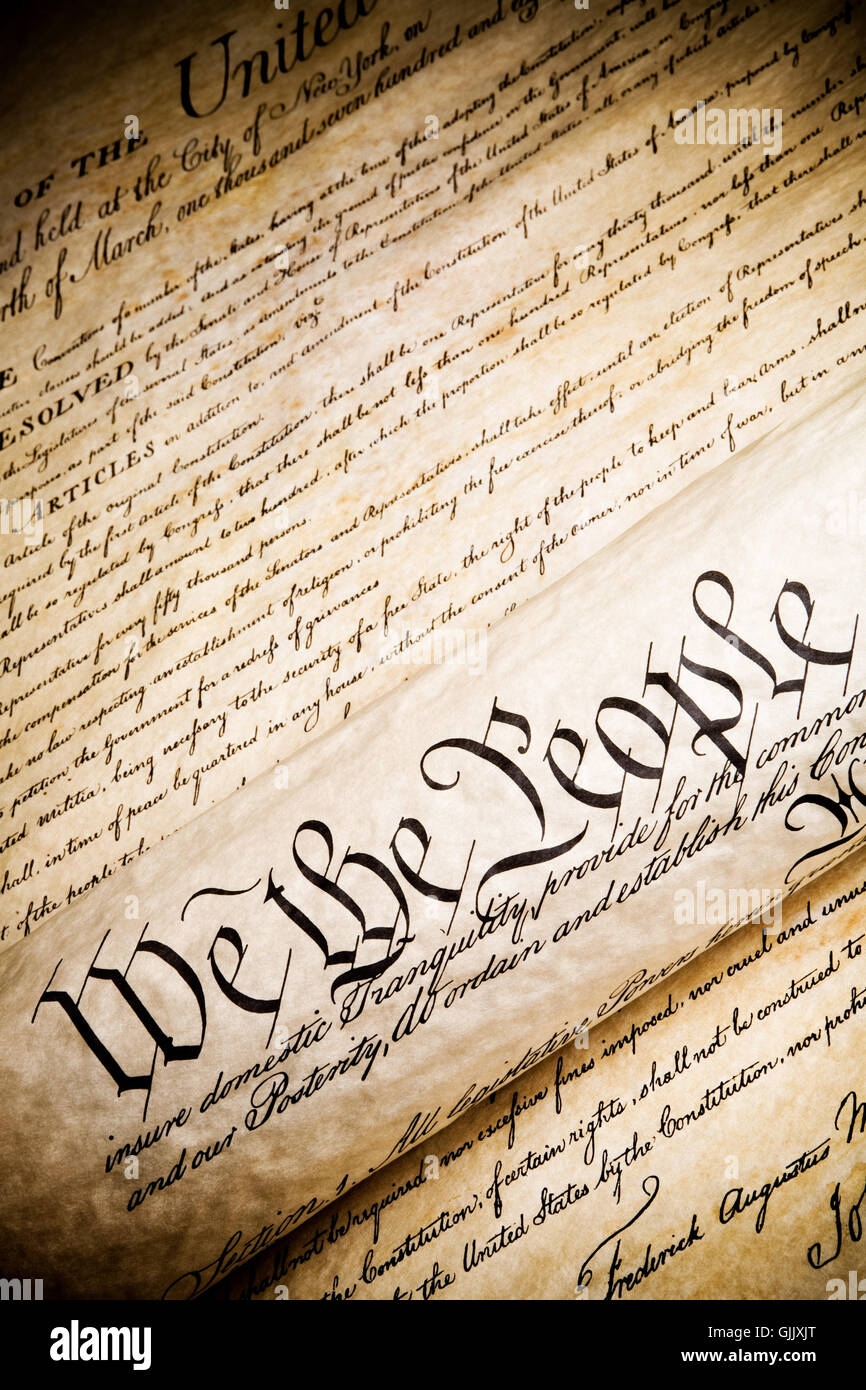 OF THE United
nd held at the City of New-York, on
rth of March, one thousand seven hundred and eig
E Conventions of a number of the States, having at the time of their adopting the Constitution, exp
uctive clauses should be added: And as extending the ground of public confidence in the Government, will be
ESOLVED by the Senate and House of Representatives of the United States of America, in Congress
the Legislatures of the several States, as amendments to the Constitution of the United States, all, or any of which Articles,
urposes, as part of the said Constitution; vizt
ARTICLES in addition to, and amendment of the Constitution of the United States of America, proposed by Congress
Article of the original Constitution.
required by the first Article of the Constitution, there shall be one Representative for every thirty thousand, until the number sha
all be so regulated by Congress, that there shall be not less than one hundred Representatives, nor less than one Repre
Representatives shall amount to two hundred, after which the proportion shall be so regulated by Congress, that there shall
Representative for every fifty thousand persons.
the compensation for the services of the Senators and Representatives, shall take effect, until an election of Representatives sha
ake no law respecting an establishment of religion, or prohibiting the free exercise thereof; or abridging the freedom of speech
petition the Government for a redress of grievances
ted militia, being necessary to the security of a free State, the right of the people to keep and bear Arms, shall no
hall, in time of peace be quartered in any house, without the consent of the Owner, nor in time of war, but in a m
t of the people to be
We the People
insure domestic Tranquility, provide for the common
and our Posterity, do ordain and establish this Con
Section. 1. All legislative Powers herein
shall not be required nor excessive fines imposed, nor cruel and unus
the Constitution, of certain rights, shall not be construed to
the United States by the Constitution, nor prohi
Frederick Augustus M
Joh
alamy
Image ID: GJJXJT
www.alamy.com